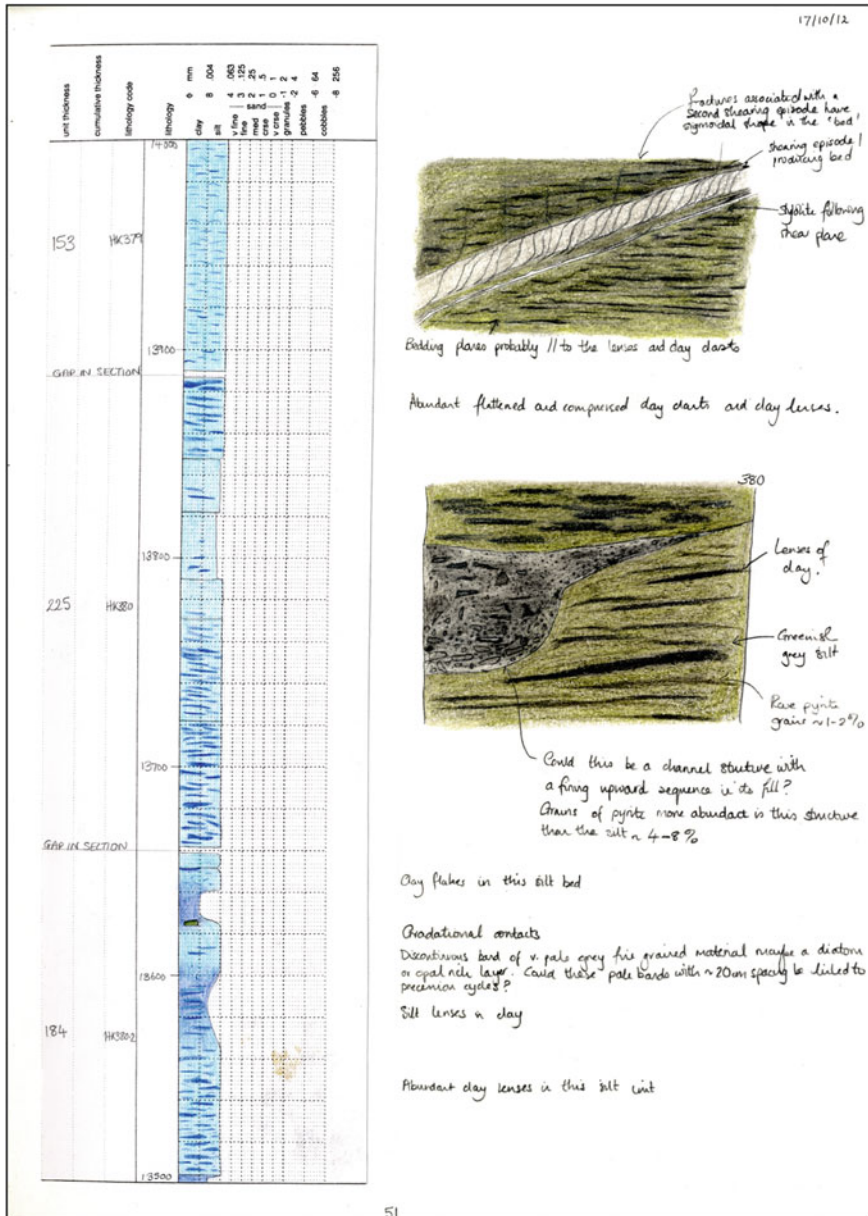 17/10/12
unit thickness
cumulative thickness
lithology code
lithology
φ mm
8 .004
4 .063
3 .125
2 .25
1 .5
0 1
-1 2
-2 4
-6 64
-8 256
clay
silt
v fine
fine
med
crse
v crse
sand
granules
pebbles
cobbles
153
HK379
13900
GAP IN SECTION
13800
225
HK380
13700
GAP IN SECTION
13600
184
HK380-2
13500
Fractures associated with a
second shearing episode have
sigmoidal shape in the 'bed'
shearing episode 1
producing bed
Stylolite following
shear plane
Bedding planes probably // to the lenses and clay clasts
Abundant flattened and compressed clay clasts and clay lenses.
380
Lenses of
clay.
Greenish
grey silt
Rare pyrite
grains ~1-2%
Could this be a channel structure with
a fining upward sequence in its fill?
Grains of pyrite more abundant in this structure
than the silt ~ 4-8%
Clay flakes in this silt bed
Gradational contacts
Discontinuous band of v. pale grey fine grained material maybe a diatom
or opal rich layer. Could these pale bands with ~20cm spacing be linked to
precession cycles?
Silt lenses in clay
Abundant clay lenses in this silt unit
51